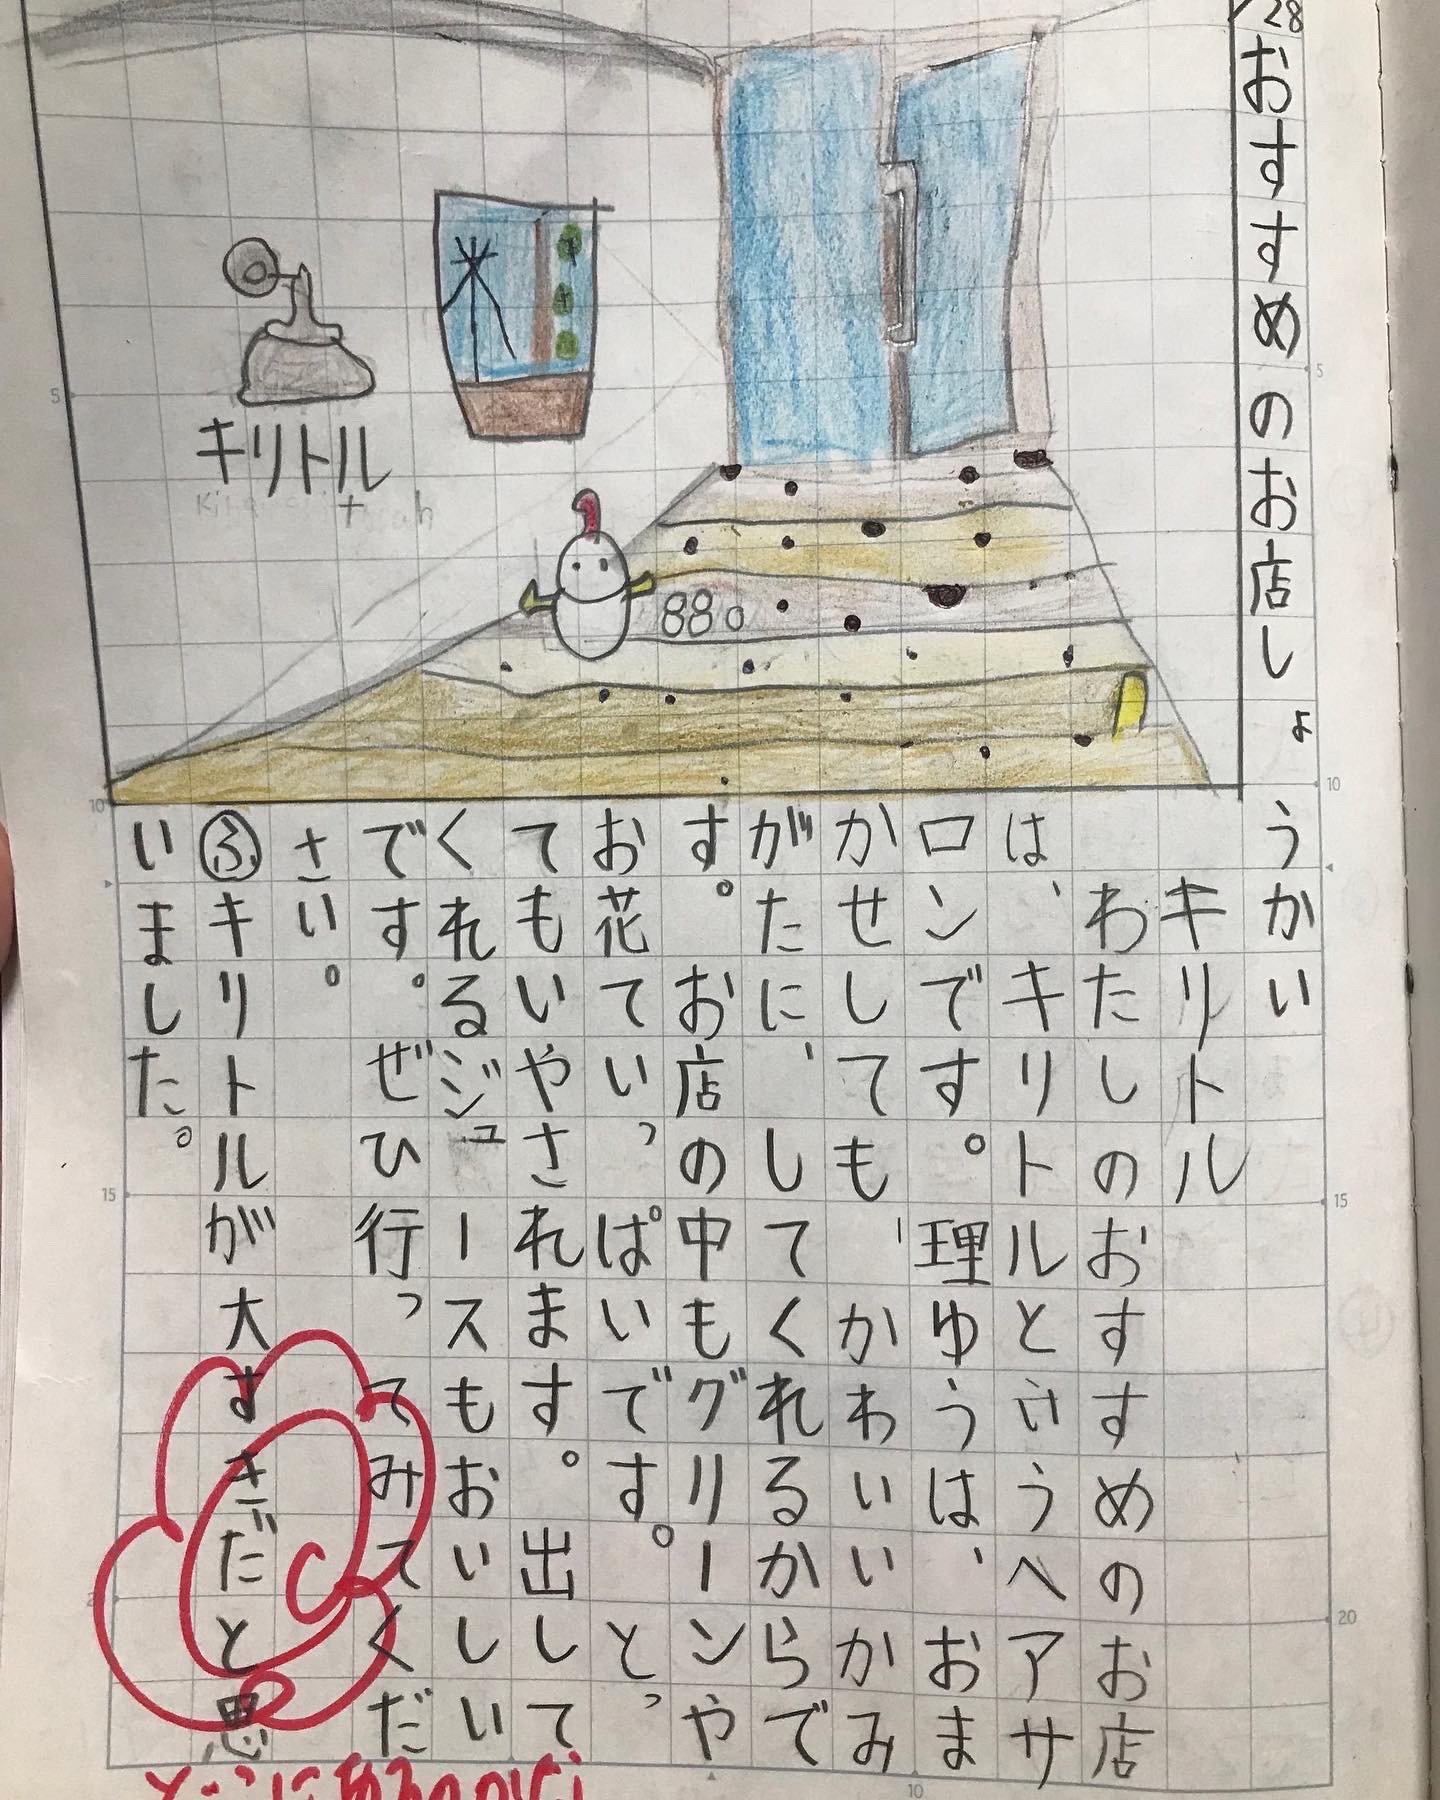 28
おすすめのお店しょうかい
キリトル
わたしのおすすめのお店
は、キリトルというヘアサ
ロンです。理ゆうは、おま
かせしても、かわいいかみ
がたに、してくれるからで
す。お店の中もグリーンや
お花ていっぱいです。とっ
てもいやされます。出して
くれるジュースもおいしい
です。ぜひ行ってみてくだ
さい。
ふキリトルが大すきだと思
いました。
キリトル